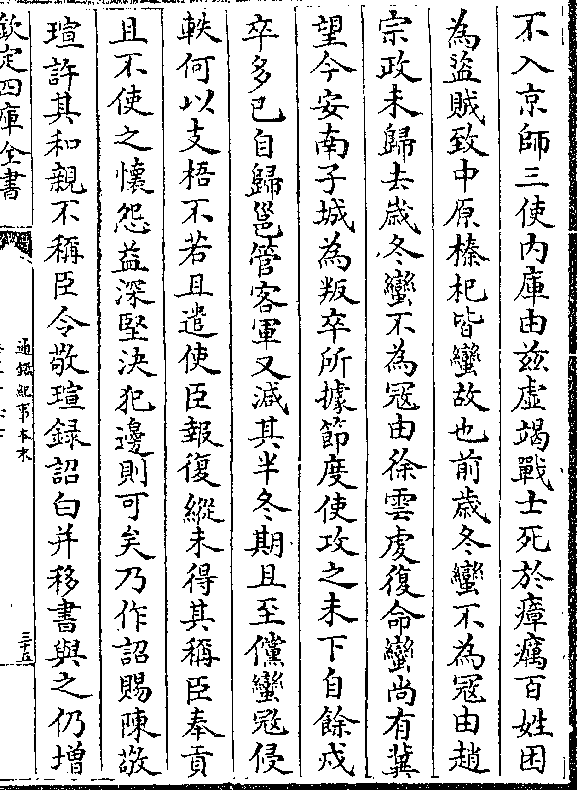 不入京師三使内庫由兹虚竭戰士死於瘴癘百姓困
為盜賊致中原榛杞皆蠻故也前歲冬蠻不為冦由趙
宗政未歸去歲冬蠻不為冦由徐雲䖍復命蠻尚有冀
望今安南子城為叛卒所據節度使攻之未下自餘戍
卒多已自歸邕管客軍又減其半冬期且至儻蠻冦侵
軼何以支梧不若且遣使臣報復縱未得其稱臣奉貢
且不使之懷怨益深堅決犯邊則可矣乃作詔賜陳敬
瑄許其和親不稱臣令敬瑄録詔白并移書與之仍增
欽定四庫全書
通鑑紀事本末
三十五